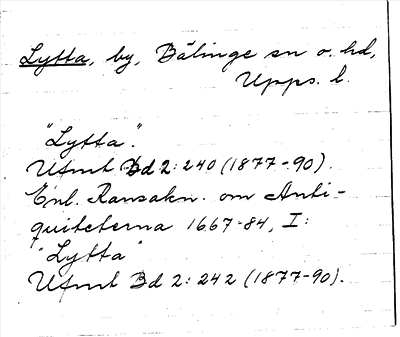 Lytta, by, Bälinge sn o. hd,
Upps. l.
"Lytta".
Ufmt Bd 2: 240 (1877-90).
Enl. Ransakn. om Anti-
quiteterna 1667-84, I:
"Lytta"
Ufmt Bd 2: 242 (1877-90).